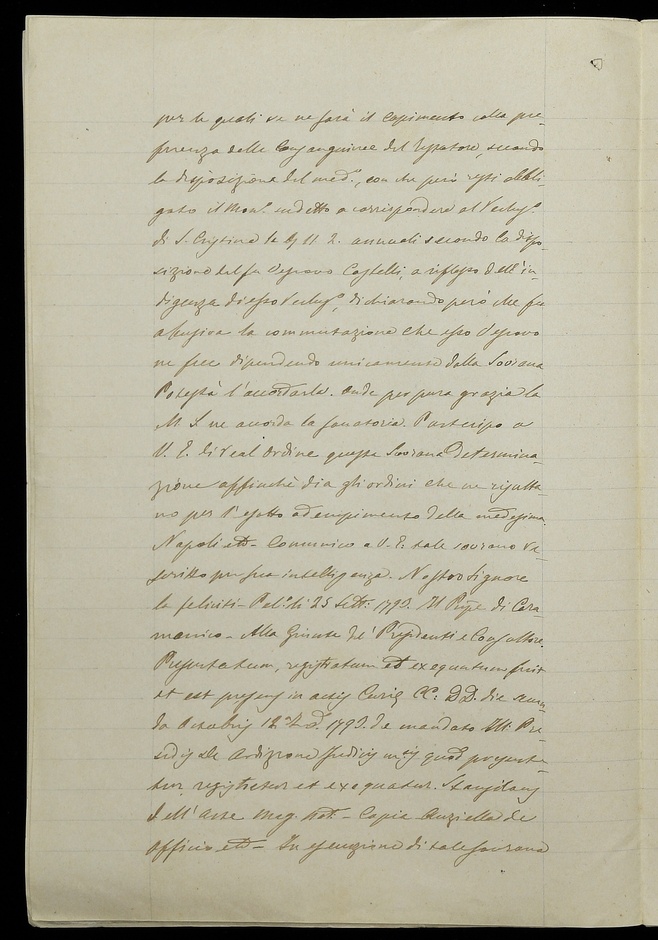 per le quali se ne farà il Capimento colla pre-
ferenza delle Consanguinee del Testatore, secondo
la disposizione del med.º, con che però resti obbli-
gato il Mon.º indetto a corrispondere al Vech.º
di S. Cristina le 2. annuali secondo la dispo-
sizione del fu Vescovo Castelli, a riflesso dell'in-
digenza di esso dichiarando però che fu
abusiva la commutazione che esso Vescovo
ne fece dipendendo unicamente dalla Sovrana
Potestà l'accordarla. Onde per pura grazia la
M. S. ne accorda la sanatoria. Partecipo a
V. E. di Real Ordine questa Sovrana Determina-
zione affinchè dia gli ordini che ne risulta-
no per l'esatto adempimento della medesima.
Napoli etc- Comunico a V. E. tale sovrano re-
scritto per sua intelligenza. Nostro Signore
la feliciti- Pal.º li 25 Sett: 1793. Il Pnpe di Cara-
manico- Alla Giunta de' Presidenti e Consultore.
Presentatum, registratum et exequutum fuit
et est presens in actis Curiæ DD. die secun-
do Octobris 12.ª Ind. 1793. de mandato Ill. Pre-
sidis de Ardizzone Judicis quod presente-
tur, registretur et exequatur. Stanislaus
Dell'Arte Mag. Not.- Copia Auziella de
officio etc- In esecuzione di tale sovrana